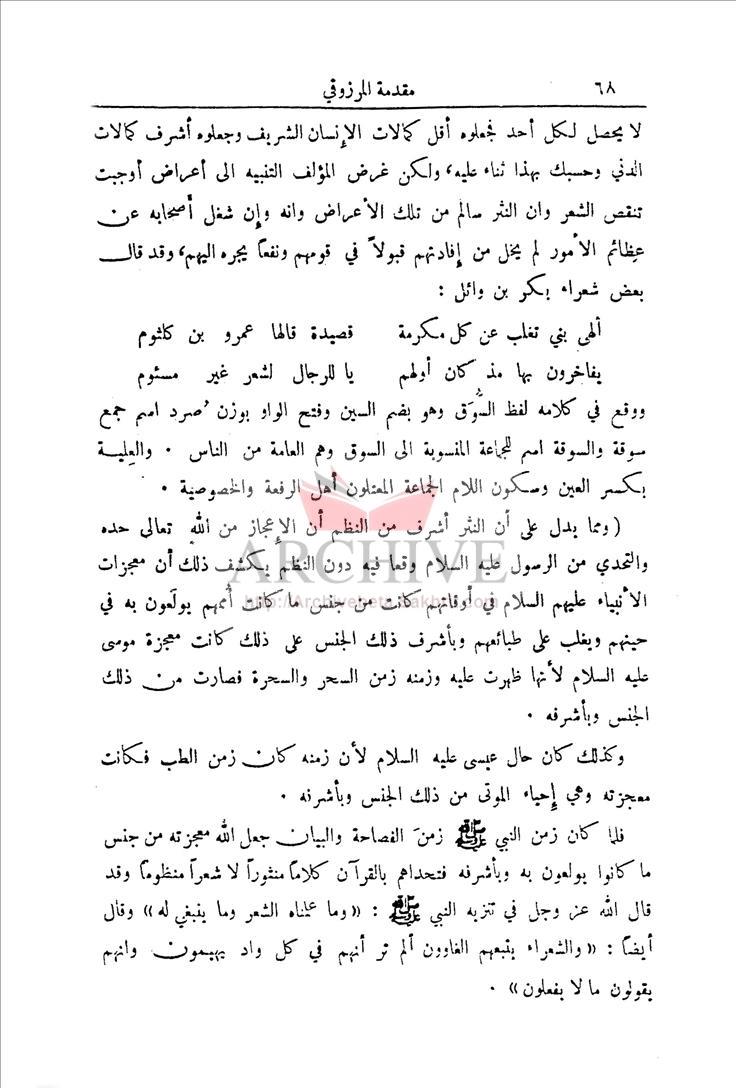 ٦٨ مقدمة المرزوقي
لا يحصل لكل أحد فجعلوه أقل كمالات الإنسان الشريف وجعلوه أشرف كمالات
الدني وحسبك بهذا ثناء عليه، ولكن غرض المؤلف التنبيه الى أعراض أوجبت
تنقص الشعر وان النثر سالم من تلك الأعراض وانه وإن شغل أصحابه عن
عظائم الأمور لم يخل من إفادتهم قبولاً في قومهم ونفعاً يجره اليهم، وقد قال
بعض شعراء بكر بن وائل :
ألهى بني تغلب عن كل مكرمة قصيدة قالها عمرو بن كلثوم
يفاخرون بها مذ كان أولهم يا للرجال لشعر غير مسئوم
ووقع في كلامه لفظ السُّوَق وهو بضم السين وفتح الواو بوزن صُرد اسم جمع
سوقة والسوقة اسم للجماعة المنسوبة الى السوق وهم العامة من الناس . والعِلية
بكسر العين وسكون اللام الجماعة المعتلون أهل الرفعة والخصوصية .
(ومما يدل على أن النثر أشرف من النظم أن الإعجاز من الله تعالى حده
والتحدي من الرسول عليه السلام وقعا فيه دون النظم يكشف ذلك أن معجزات
الأنبياء عليهم السلام في أوقاتهم كانت من جنس ما كانت أُممهم يولَعون به في
حينهم ويغلب على طبائعهم وبأشرف ذلك الجنس على ذلك كانت معجزة موسى
عليه السلام لأنها ظهرت عليه وزمنه زمن السحر والسحرة فصارت من ذلك
الجنس وبأشرفه .
وكذلك كان حال عيسى عليه السلام لأن زمنه كان زمن الطب فكانت
معجزته وهي إحياء الموتى من ذلك الجنس وبأشرفه .
فلما كان زمن النبي ﷺ زمنَ الفصاحة والبيان جعل الله معجزته من جنس
ما كانوا يولعون به وبأشرفه فتحداهم بالقرآن كلاماً منثوراً لا شعراً منظوماً وقد
قال الله عز وجل في تنزيه النبي ﷺ : «وما علمناه الشعر وما ينبغي له» وقال
أيضاً : «والشعراء يتبعهم الغاوون ألم تر أنهم في كل واد يهيمون وانهم
يقولون ما لا يفعلون» .
ARCHIVE